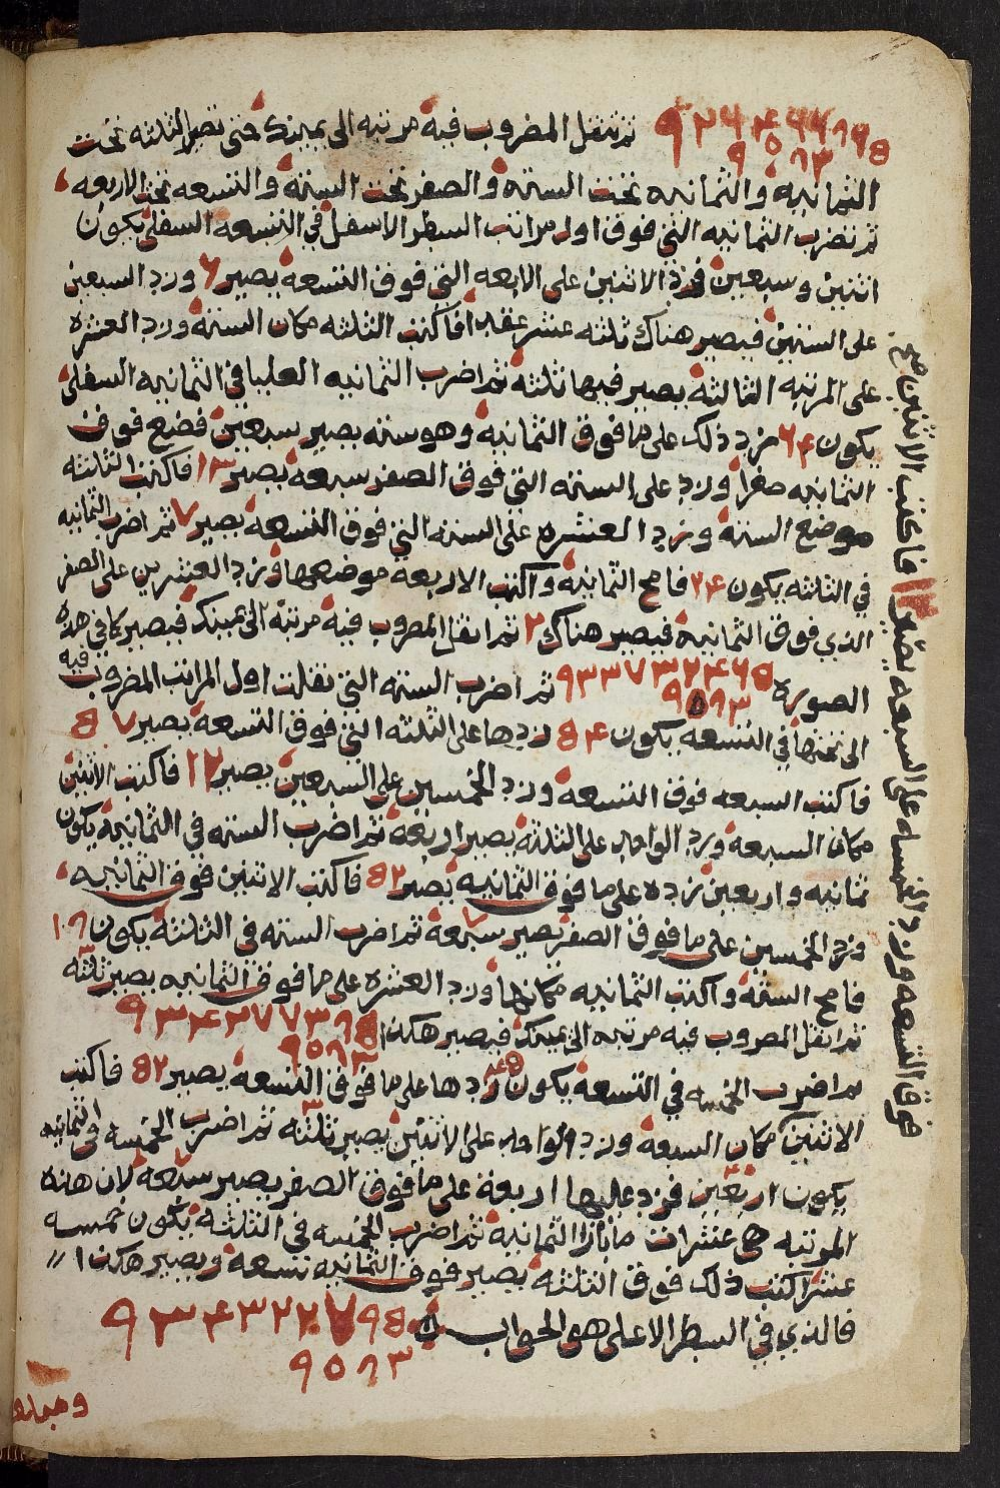 ثم تنقل المضروب فيه مرتبه الى يمينك حتى تصير الثلثه تحت
الثمانيه والثمانيه تحت السته والصفر تحت السته والتسعه تحت الاربعه
ثم تضرب الثمانيه التي فوق اول مراتب السطر الاسفل في التسعه السفلى يكون
اثنين وسبعين فزد الاثنين على الاربعه التي فوق التسعه يصير ٦ وزد السبعين
على الستين فيصير هناك ثلثه عشر عقدا فاكتب الثلثه مكان السته وزد العشره
على المرتبه الثالثه يصير فيها ثلثة ثم اضرب الثمانيه العليا في الثمانيه السفلى
يكون ٦۴ فزد ذلك على ما فوق الثمانيه وهو سته يصير سبعين فضع فوق
الثمانيه صفرا وزد على السته التي فوق الصفر سبعه يصير ١٣ فاكتب الثلثه
موضع السته وزد العشره على السته التي فوق التسعه يصير ٧ ثم اضرب الثمانيه
في الثلثه يكون ٢۴ فامح الثمانيه واكتب الاربعه موضعها وزد العشرين على الصفر
الذي فوق الثمانيه فيصير هناك ٢ ثم انقل المضروب فيه مرتبه الى يمينك فيصير كما في هذه
الصوره ٩٣٣٧٣٢۴٦٥ ثم اضرب السته التي نقلت اول المراتب المضروب فيه
٩٥٨٣
الى تحتها في التسعه يكون ٥۴ زدها على الثلثه التي فوق التسعه يصير ٥٧
فاكتب السبعه فوق التسعه وزد الخمسين على السبعين يصير ١٢ فاكتب الاثنين
مكان السبعه وزد الواحد على الثلثه يصير اربعة ثم اضرب السته في الثمانيه يكون
ثمانيه واربعين زده على ما فوق الثمانيه يصير ٥٢ فاكتب الاثنين فوق الثمانيه
وزد الخمسين على ما فوق الصفر يصير سبعة ثم اضرب السته في الثلثة يكون ١٨
فامح السته واكتب الثمانيه مكانها وزد العشره على ما فوق الثمانيه يصير ثلثه
ثم انقل المضروب فيه مرتبه الى يمينك فيصير هكذا ٩٣۴٢٧٧٣٨٥
٩٥٨٣
ثم اضرب الخمسه في التسعة يكون ۴٥ زدها على ما فوق التسعة يصير ٥٢ فاكتب
الاثنين مكان السبعة وزد الواحد على الاثنين يصير ثلثه ثم اضرب الخمسه في الثمانيه
يكون اربعين فزد عليها اربعة على ما فوق الصفر يصير سبعة لان هذه
المرتبه هي عشرات مابازا الثمانية ثم اضرب الخمسه في الثلثه يكون خمسه
عشر اكتب ذلك فوق الثلثه يصير فوق الثمانيه تسعة ويصير هكذا
فالذي في السطر الاعلى هو الجواب ٩٣۴٣٢٢٧٩٥
٩٥٨٣
فوق التسعه وزد الخمسه على السبعه يصير ١٢ فاكتب الاثنين صح